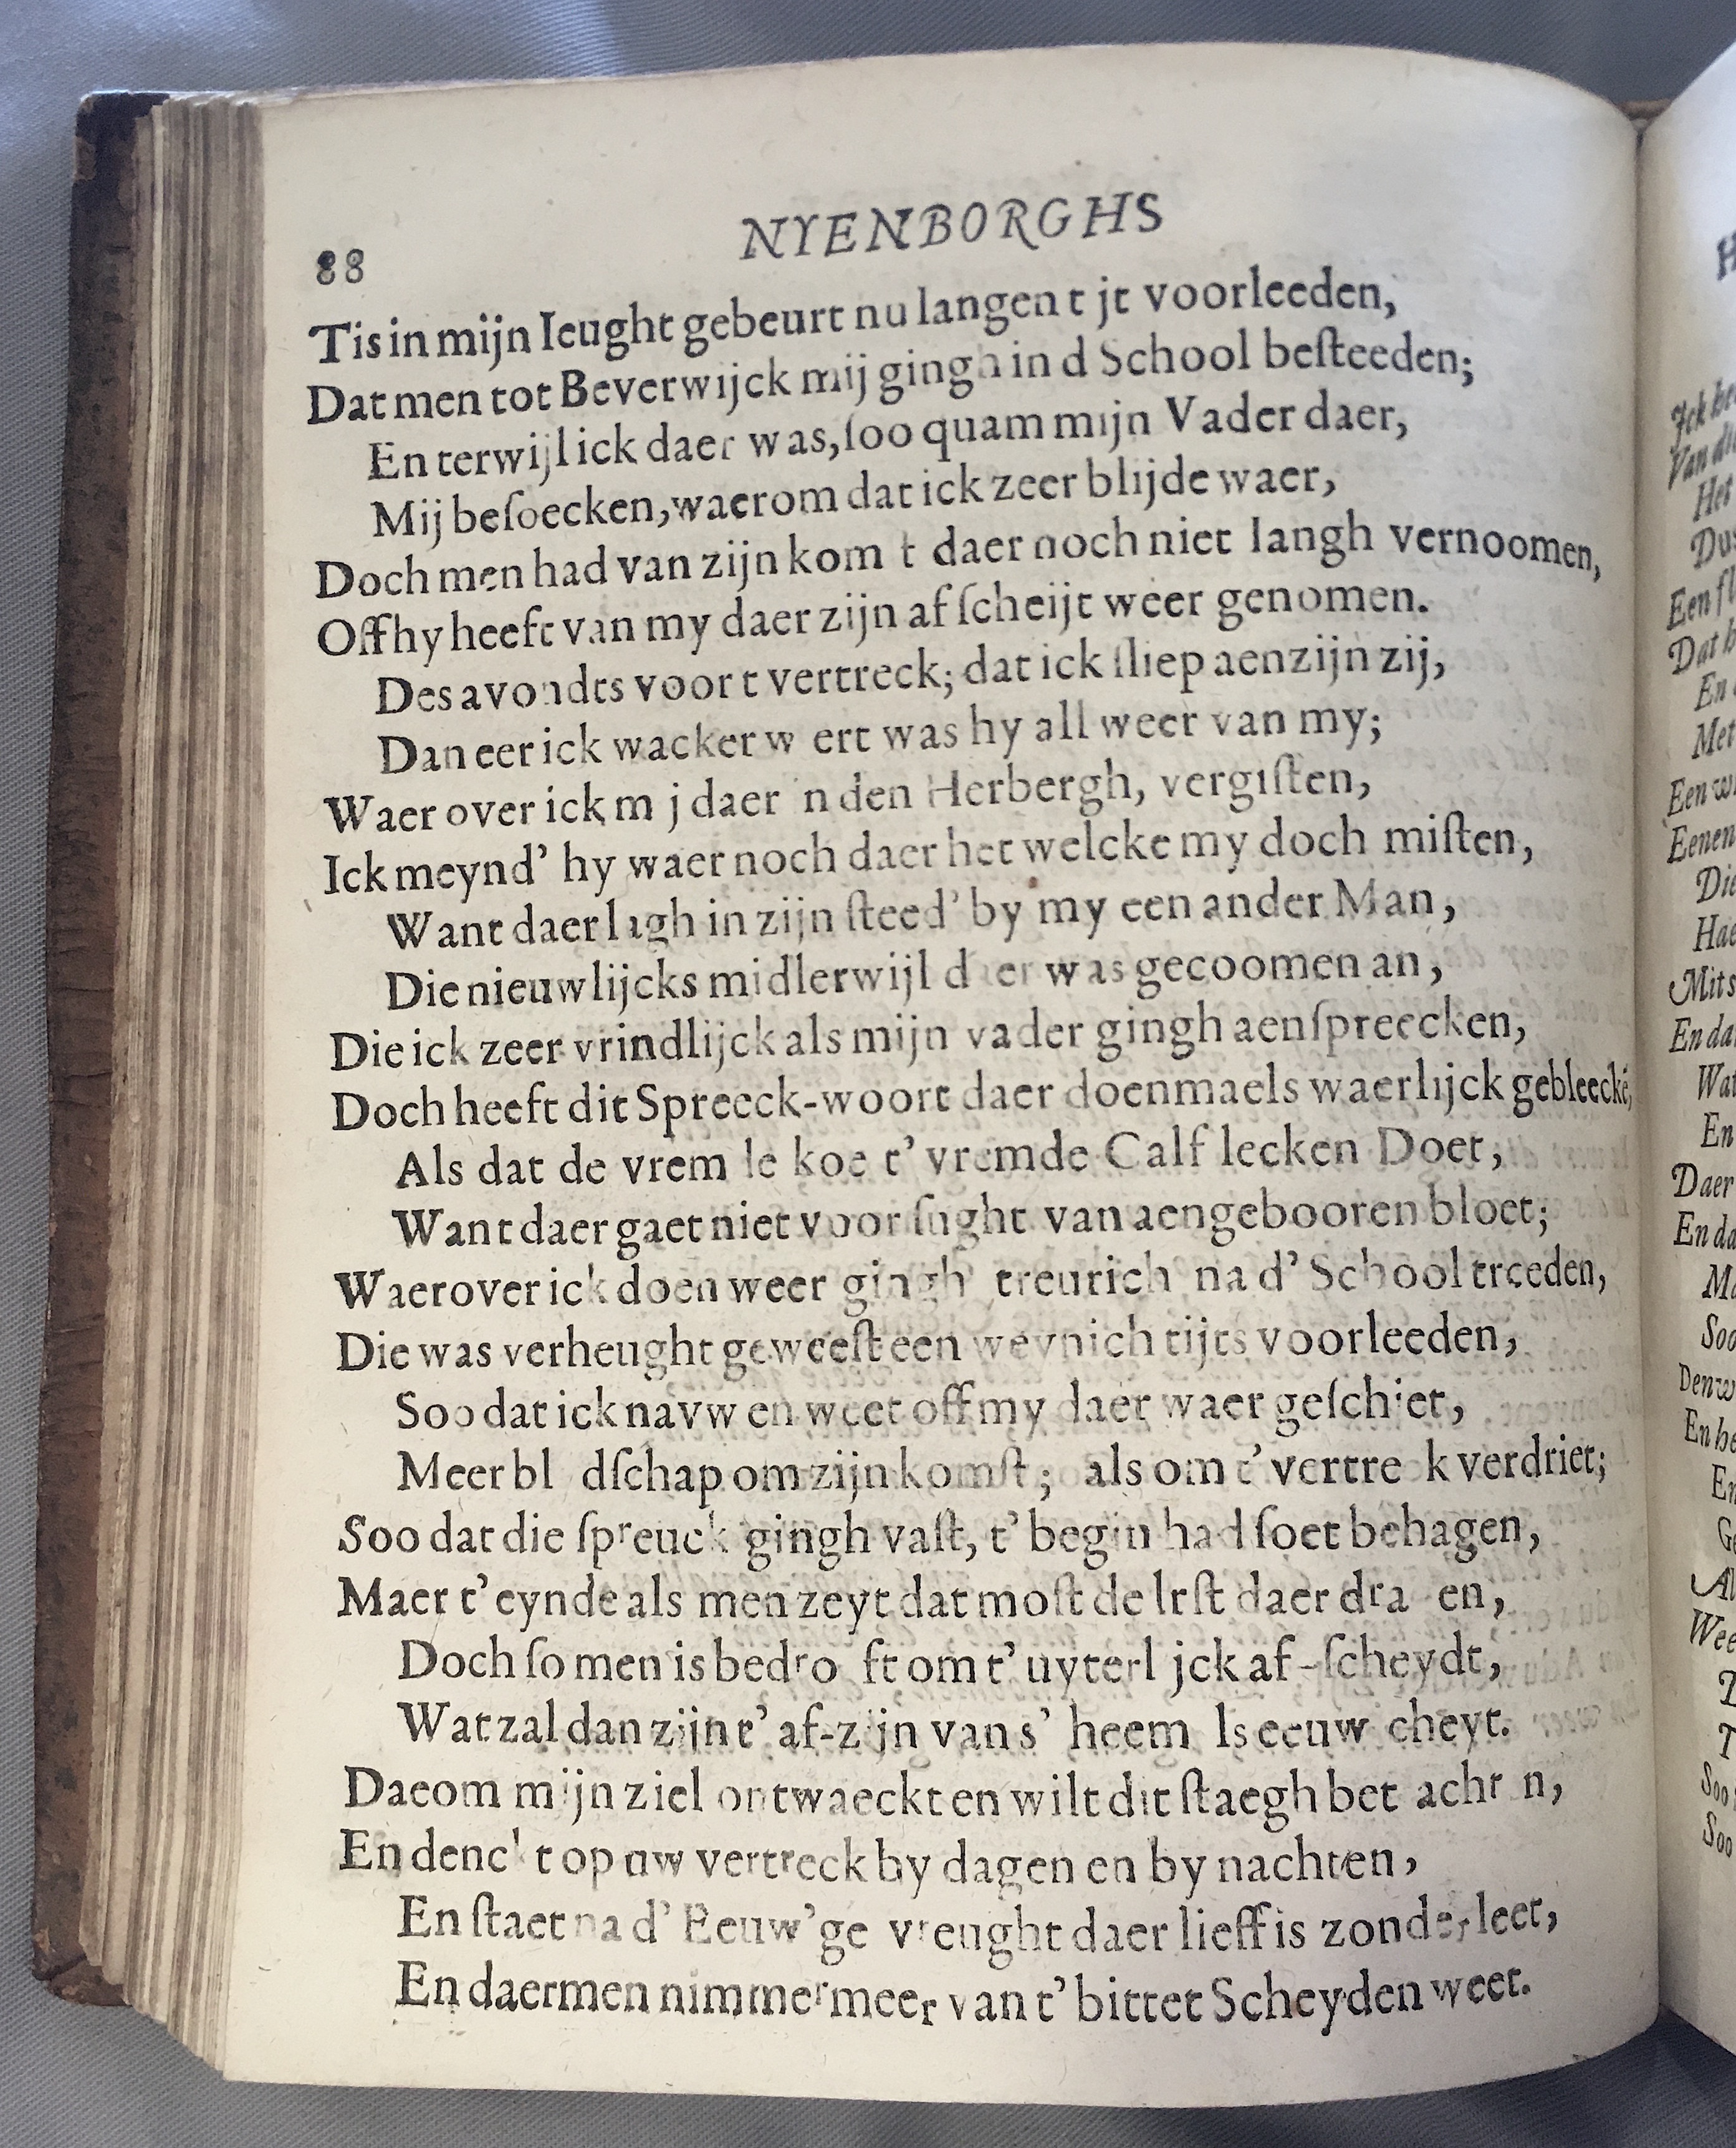 88 NYENBORGHS
Tis in mijn Ieught gebeurt nu langen t jt voorleeden,
Dat men tot Beverwijck mij gingh in d School beſteeden;
En terwijl ick daer was, ſoo quam mijn Vader daer,
Mij beſoecken, waerom dat ick zeer blijde waer,
Doch men had van zijn kom t daer noch niet langh vernoomen,
Off hy heeft van my daer zijn af ſcheijt weer genomen.
Des avondts voor t vertreck; dat ick ſliep aen zijn zij,
Dan eer ick wacker w ert was hy all weer van my;
Waer over ick m j daer 'n den Herbergh, vergiſten,
Ick meynd' hy waer noch daer het welcke my doch miſten,
Want daer lagh in zijn ſteed' by my een ander Man,
Die nieuwlijcks midlerwijl d er was gecoomen an,
Die ick zeer vrindlijck als mijn vader gingh aenſpreecken,
Doch heeft dit Spreeck-woort daer doenmaels waerlijck gebleecké,
Als dat de vrem de koe t' vremde Calf lecken Doet,
Want daer gaet niet voor ſught van aengebooren bloet;
Waerover ick doen weer gingh treurich na d' School treeden,
Die was verheught geweeſt een weynich tijts voorleeden,
Soo dat ick navw en weet off my daer waer geſchiet,
Meer bl dſchap om zijn komſt; als om t' vertre k verdriet;
Soo dat die ſpreuck gingh vaſt, t' begin had ſoet behagen,
Maer t' eynde als men zeyt dat moſt de lrſt daer dra en,
Doch ſo men is bedro ft om t' uyterl jck af-ſcheydt,
Wat zal dan zijn t' af-zijn van s' heem ls eeuw cheyt.
Daeom mijn ziel ontwaeckt en wilt dit ſtaegh bet achr n,
En denc't op uw vertreck by dagen en by nachten,
En ſtaet na d' Eeuw'ge vreught daer lieff is zonder leet,
En daermen nimmermeer van t' bittet Scheyden weet.